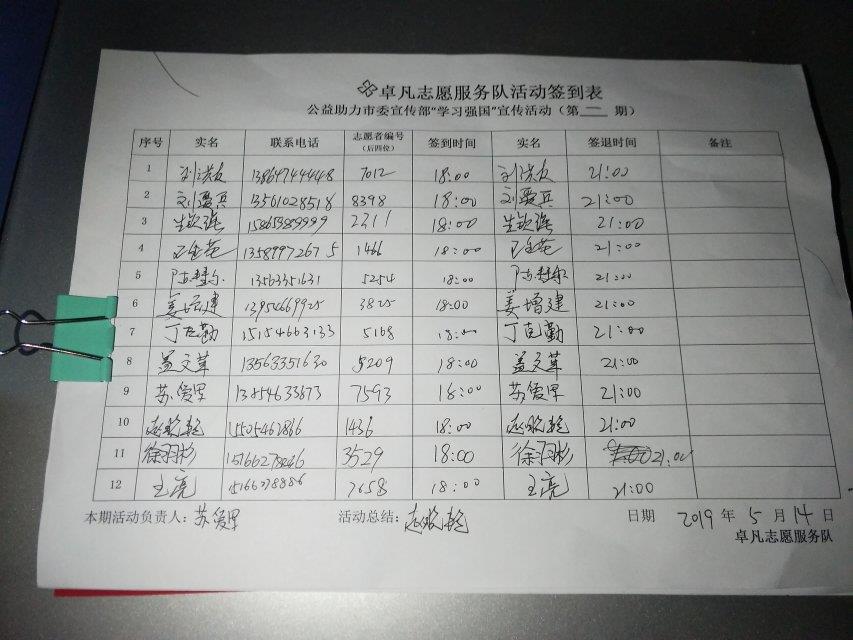 卓凡志愿服务队活动签到表
公益助力市委宣传部"学习强国"宣传活动（第 二 期）
序号 实名 联系电话 志愿者编号（后四位） 签到时间 实名 签退时间 备注
1 7012 18:00 21:00
2 13561028518 8398 18:00 21:00
3 15865389999 2311 18:00 21:00
4 13589972675 1466 18:00 21:00
5 13563351631 5254 18:00 21:00
6 姜增建 13954669925 3825 18:00 姜增建 21:00
7 丁克勤 15154663133 5168 18:00 丁克勤 21:00
8 盖文革 13563351630 5209 18:00 盖文革 21:00
9 苏爱军 13854633673 7593 18:00 苏爱军 21:00
10 1505462866 1436 18:00 21:00
11 徐羽彬 3529 18:00 徐羽彬 21:00
12 王亮 15166278886 7658 18:00 王亮 21:00
本期活动负责人：苏爱军 活动总结： 日期 2019 年 5 月 14 日
卓凡志愿服务队